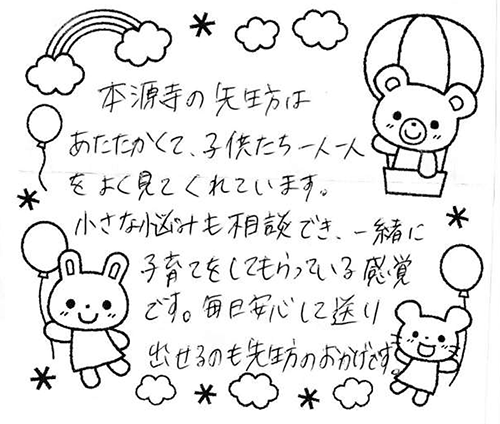 本源寺の先生方は
あたたかくて、子供たち一人一人
をよく見てくれています。
小さな悩みも相談でき、一緒に
子育てをしてもらっている感覚
です。毎日安心して送り
出せるのも先生方のおかげです。